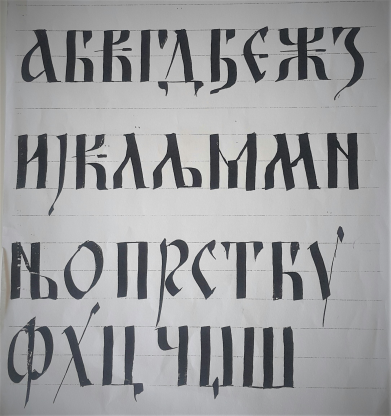 АБВГДЂЕЖЗ
ИЈКЛЉММН
ЊОПРСТЋУ
ФХЦЧЏШ